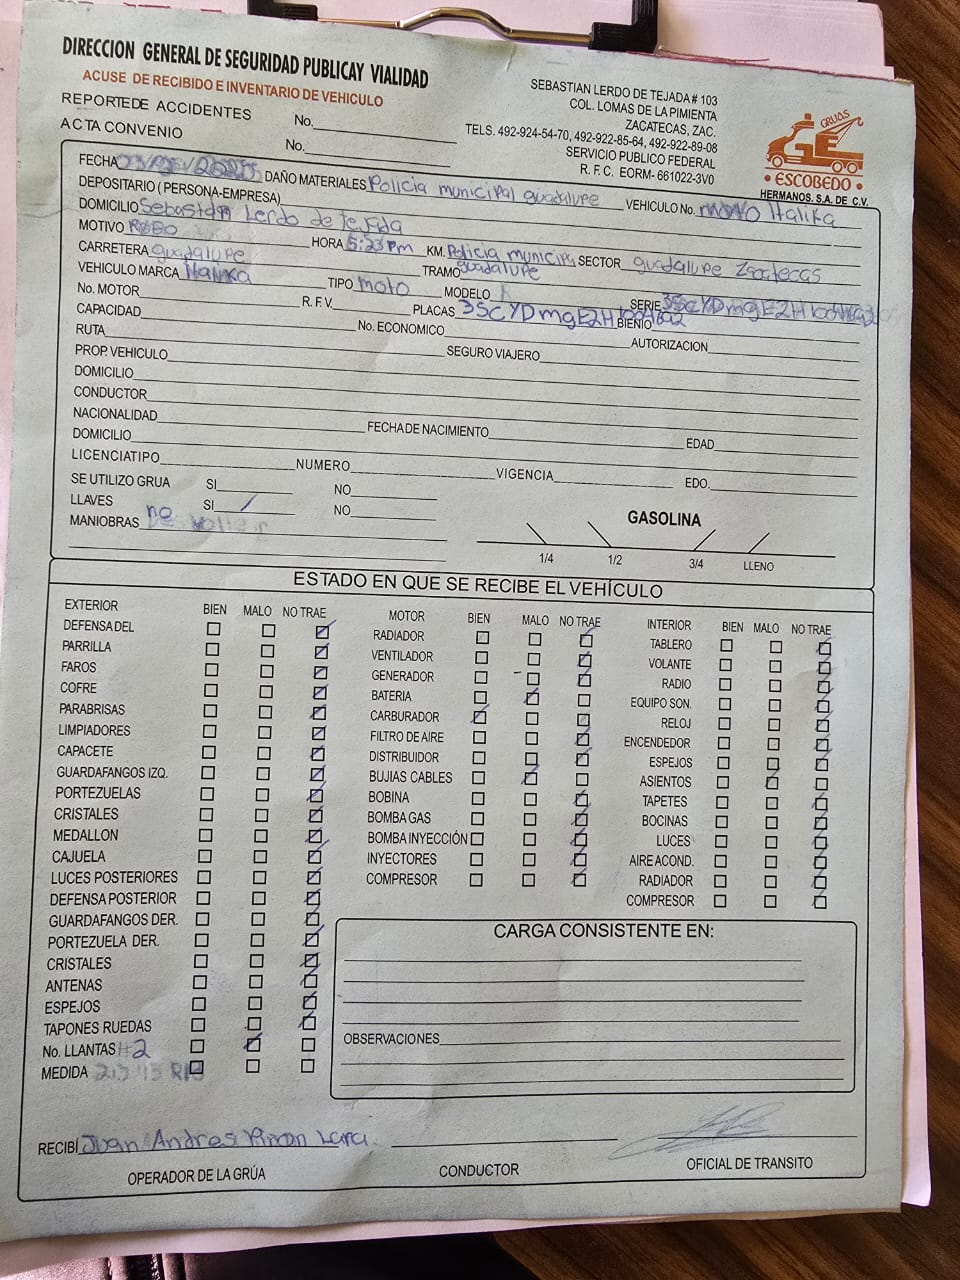 DIRECCION GENERAL DE SEGURIDAD PUBLICAY VIALIDAD
ACUSE DE RECIBIDO E INVENTARIO DE VEHICULO
REPORTEDE ACCIDENTES No.
ACTA CONVENIO No.
SEBASTIAN LERDO DE TEJADA # 103
COL. LOMAS DE LA PIMIENTA
ZACATECAS, ZAC.
TELS. 492-924-54-70, 492-922-85-64, 492-922-89-08
SERVICIO PUBLICO FEDERAL
R. F. C. EORM- 661022-3V0
GRUAS
GE
• ESCOBEDO •
HERMANOS. S.A. DE C.V.
FECHA DAÑO MATERIALES Policia municipal guadalupe VEHICULO No. moto Italika
DEPOSITARIO ( PERSONA-EMPRESA)
DOMICILIO Sebastian Lerdo de tejida
MOTIVO Robo HORA 5:23 Pm KM. Policia municip SECTOR guadalupe Zacatecas
CARRETERA guadalupe TRAMO guadalupe
VEHICULO MARCA Italika TIPO moto MODELO SERIE
No. MOTOR R. F. V. PLACAS BIENIO
CAPACIDAD No. ECONOMICO AUTORIZACION
RUTA
PROP. VEHICULO SEGURO VIAJERO
DOMICILIO
CONDUCTOR
NACIONALIDAD FECHA DE NACIMIENTO EDAD
DOMICILIO
LICENCIA TIPO NUMERO VIGENCIA EDO.
SE UTILIZO GRUA SI NO
LLAVES SI NO
MANIOBRAS no
GASOLINA
1/4 1/2 3/4 LLENO
ESTADO EN QUE SE RECIBE EL VEHÍCULO
EXTERIOR BIEN MALO NO TRAE
DEFENSA DEL
PARRILLA
FAROS
COFRE
PARABRISAS
LIMPIADORES
CAPACETE
GUARDAFANGOS IZQ.
PORTEZUELAS
CRISTALES
MEDALLON
CAJUELA
LUCES POSTERIORES
DEFENSA POSTERIOR
GUARDAFANGOS DER.
PORTEZUELA DER.
CRISTALES
ANTENAS
ESPEJOS
TAPONES RUEDAS
No. LLANTAS #2
MEDIDA
MOTOR BIEN MALO NO TRAE
RADIADOR
VENTILADOR
GENERADOR
BATERIA
CARBURADOR
FILTRO DE AIRE
DISTRIBUIDOR
BUJIAS CABLES
BOBINA
BOMBA GAS
BOMBA INYECCIÓN
INYECTORES
COMPRESOR
INTERIOR BIEN MALO NO TRAE
TABLERO
VOLANTE
RADIO
EQUIPO SON.
RELOJ
ENCENDEDOR
ESPEJOS
ASIENTOS
TAPETES
BOCINAS
LUCES
AIRE ACOND.
RADIADOR
COMPRESOR
CARGA CONSISTENTE EN:
OBSERVACIONES
RECIBÍ Juan Andres Lara
OPERADOR DE LA GRÚA CONDUCTOR OFICIAL DE TRANSITO